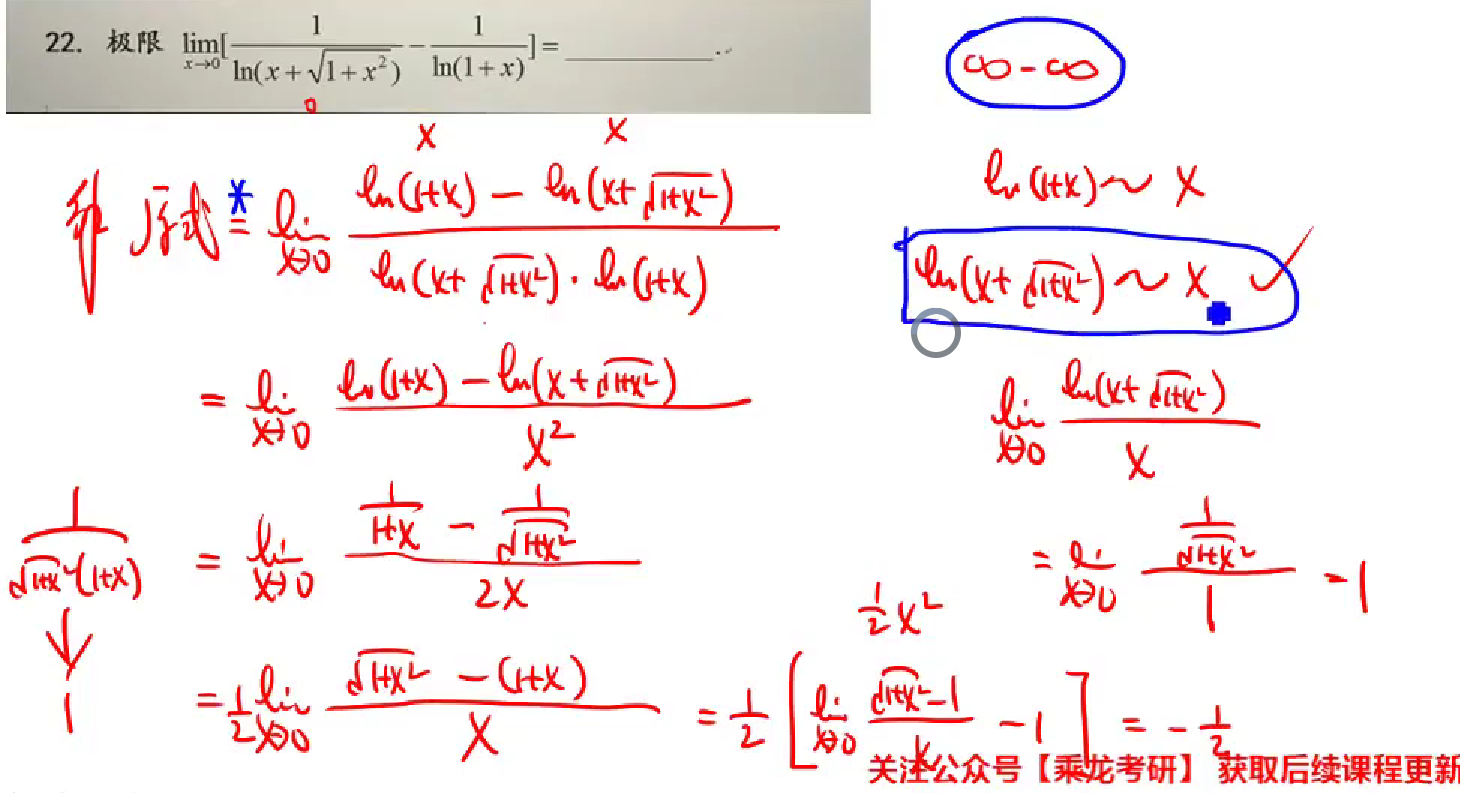 22. 极限 lim_{x→0}[1/ln(x+√(1+x²)) - 1/ln(1+x)] = ________.
∞-∞
0
x x
ln(1+x)~x
解 原式 * = lim_{x→0} (ln(1+x) - ln(x+√(1+x²)))/(ln(x+√(1+x²))·ln(1+x))
ln(x+√(1+x²))~x ✓
= lim_{x→0} (ln(1+x) - ln(x+√(1+x²)))/x²
lim_{x→0} ln(x+√(1+x²))/x
= lim_{x→0} (1/√(1+x²))/1 = 1
1/(√(1+x²)(1+x)) ↓ 1
= lim_{x→0} (1/(1+x) - 1/√(1+x²))/2x
½x²
= ½ lim_{x→0} (√(1+x²) - (1+x))/x = ½[lim_{x→0} (√(1+x²)-1)/x - 1] = -½
关注公众号【乘龙考研】 获取后续课程更新